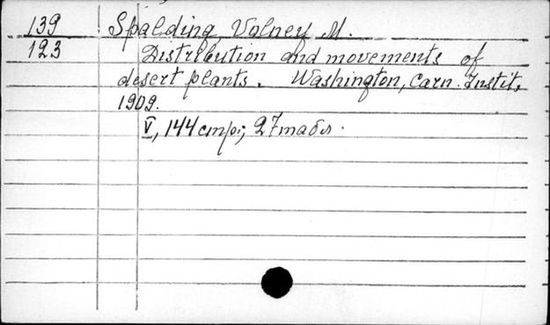 139 Spalding, Volney M.
123 Distribution and movements of
desert plants. Washington, Carn. Instit,
1909.
V, 144 cmp.; 27 maдл.